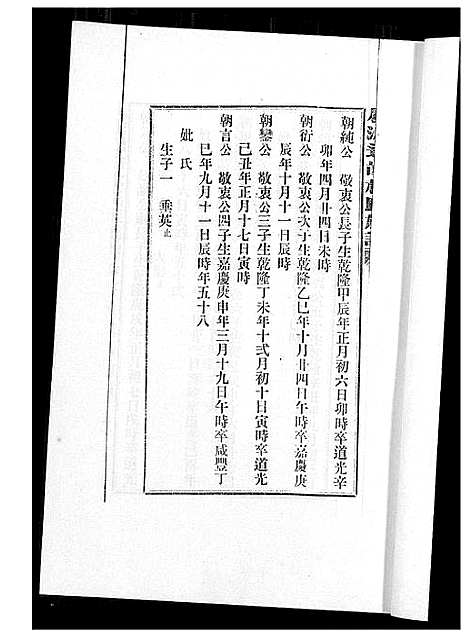 朝純公　敬衷公長子生乾隆甲辰年正月初六日卯時卒道光辛
卯年四月廿四日未時
朝衍公　敬衷公次子生乾隆乙巳年十月廿四日午時卒嘉慶庚
辰年十月十一日辰時
朝鑾公　敬衷公三子生乾隆丁未年十弍月初十日寅時卒道光
己丑年正月十七日寅時
朝言公　敬衷公四子生嘉慶庚申年三月十九日午時卒咸豐丁
巳年九月十一日辰時年五十八
妣氏
生子一　秉英止